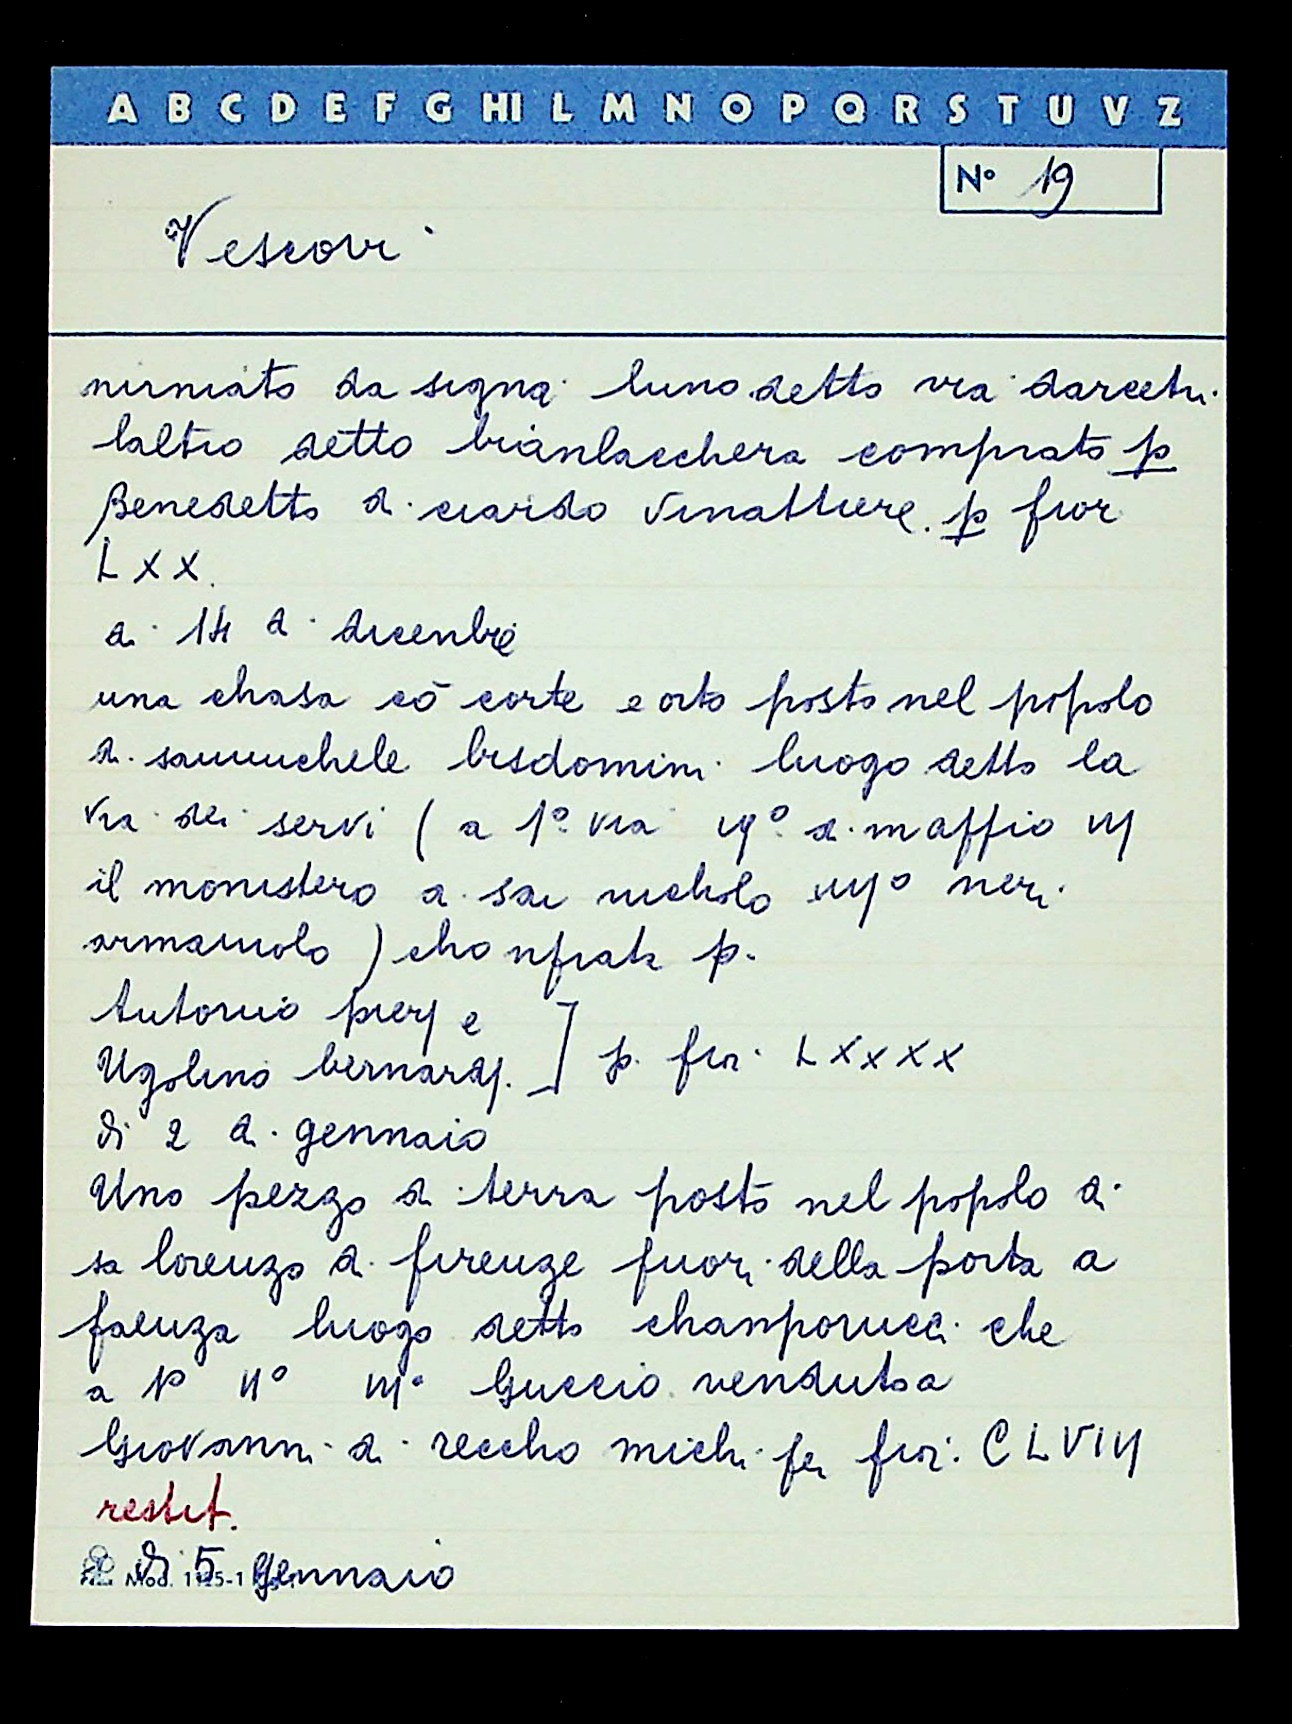 A B C D E F G HI L M N O P Q R S T U V Z
N° 19
Vescovi
da signa luno detto via
laltro detto comprato p
Benedetto d. ciardo vinattiere. p fior
L x x.
a. 14 d. dicenbre
una chasa cō corte e orto posto nel popolo
d. sanmichele bisdomini luogo detto la
via dei servi ( a 1° via ij° d. maffio iij
il monistero d. san nicholo iiij° neri
armaiuolo ) p.
Antonio pierj e
Ugolino bernardj. ] p. fior. L x x x x
di 2 d. gennaio
Uno pezzo d. terra posto nel popolo d.
sa lorenzo d. firenze fuori della porta a
faenza luogo detto che
a p° ij° iij° Guccio venduto a
Giovanni d. reccho fior. C L V I I J
restit.
di 5 gennaio